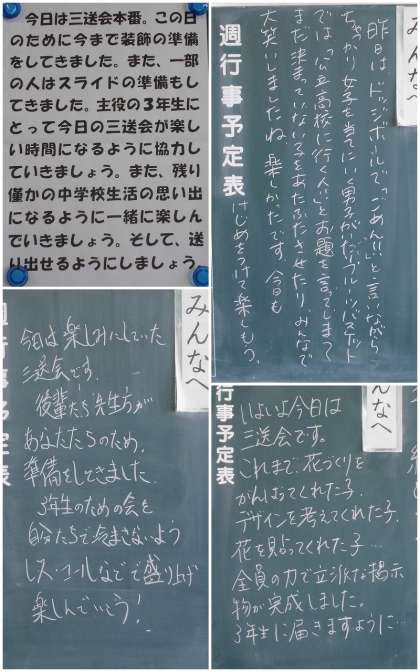 今日は三送会本番。この日
のために今まで装飾の準備
をしてきました。また、一部
の人はスライドの準備もし
てきました。主役の3年生に
とって今日の三送会が楽し
い時間になるように協力し
ていきましょう。また、残り
僅かの中学校生活の思い出
になるように一緒に楽しん
でいきましょう。そして、送
り出せるようにしましょう。
昨日は、ドッジボールで「ごめん!!」と言いながら
ちゃっかり女子を当てにいく男子がいたり、フルーツバスケット
では「公立高校に行く人」とお題を言ってしまって
まだ決まっていない子をあたふたさせたり、みんなで
大笑いしましたね。楽しかったです。今日も
けじめをつけて楽しもう。
週行事予定表
みんなへ
今日は楽しみにしていた
三送会です。
後輩たち、先生方が
あなたたちのため、
準備をしてきました。
3年生のための会を
自分たちで
レス・コールなどで盛り上げ
楽しんでいこう!
週行事予定表
みんなへ
いよいよ今日は
三送会です。
これまで、花づくりを
がんばってくれた子、
デザインを考えてくれた子、
花を貼ってくれた子…
全員の力で立派な掲示
物が完成しました。
3年生に届きますように…
行事予定表